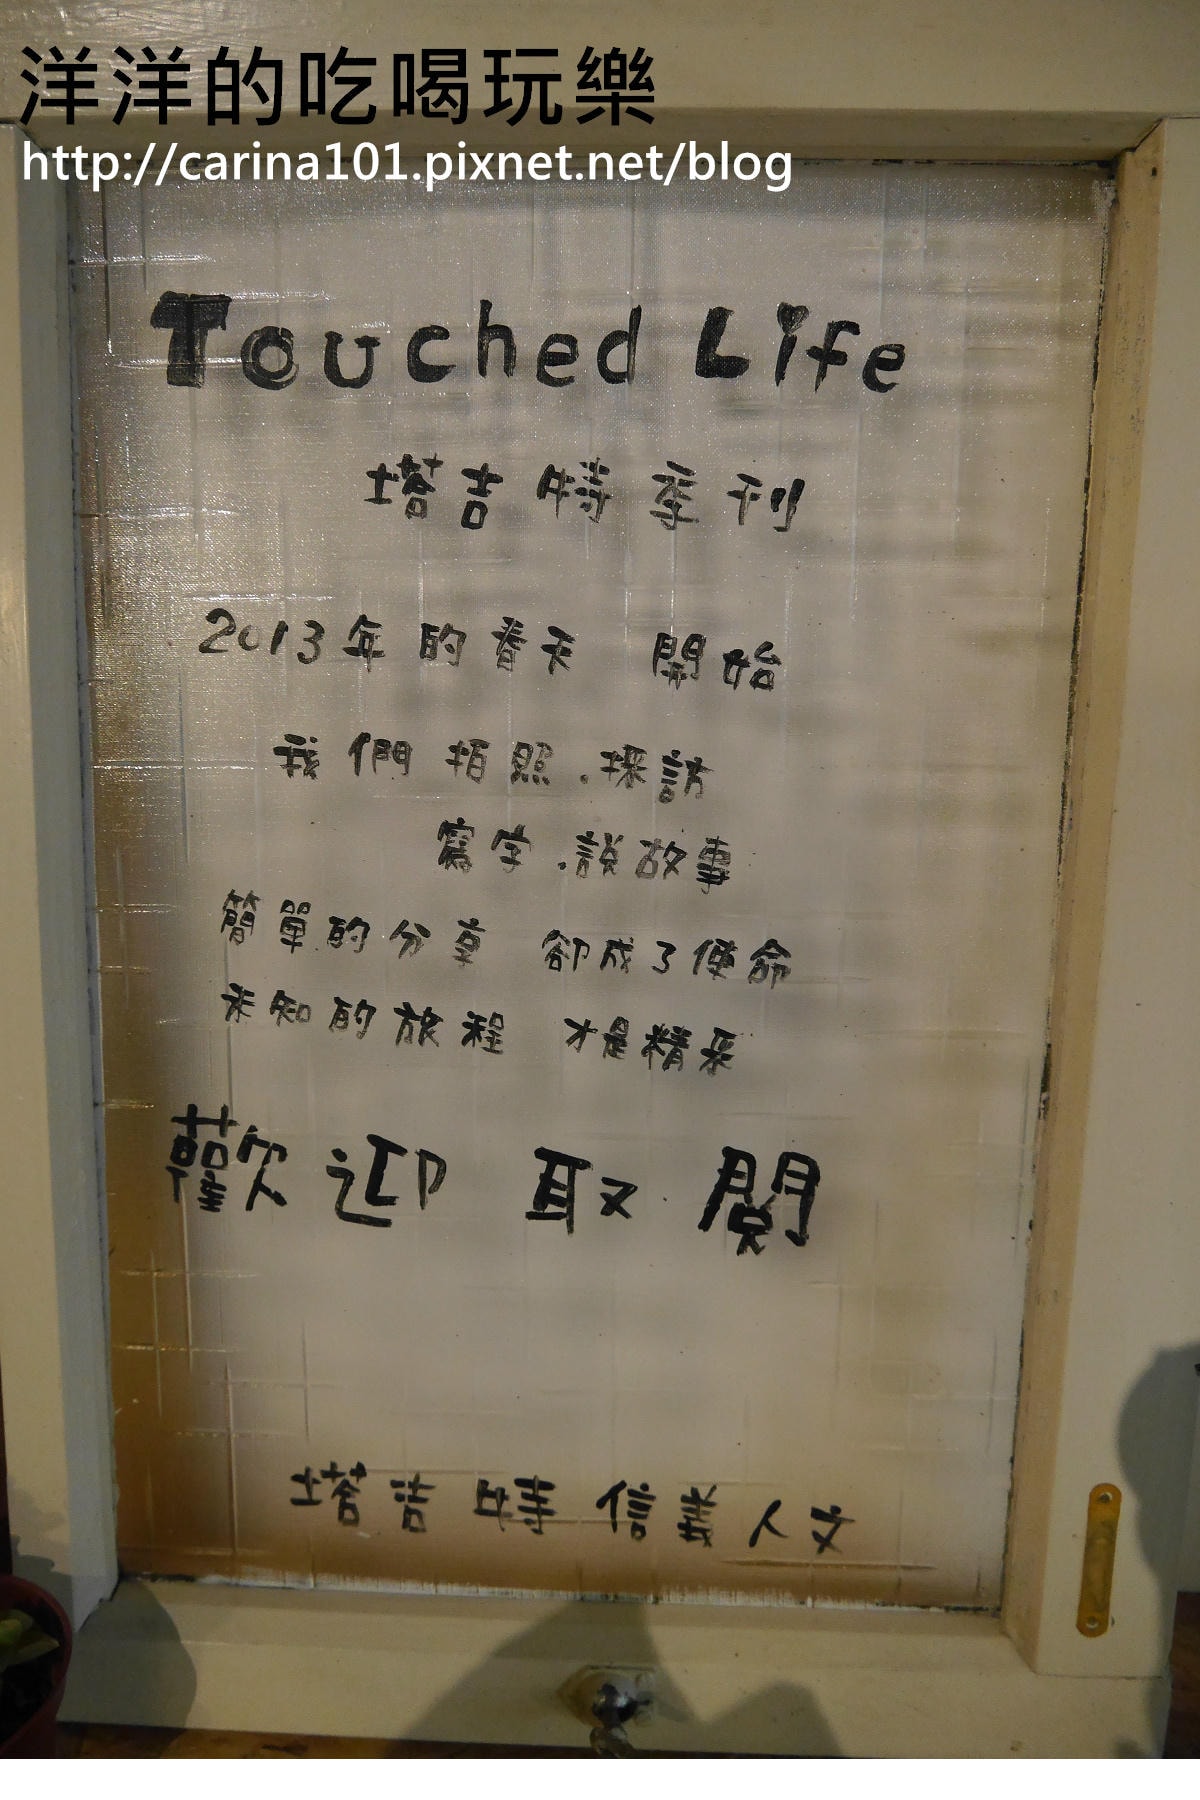 洋洋的吃喝玩樂
http://carina101.pixnet.net/blog
Touched Life
塔吉特季刊
2013年的春天 開始
我們拍照.採訪
寫字.說故事
簡單的分享 卻成了使命
未知的旅程 才是精采
歡迎 取閱
塔吉特信義人文